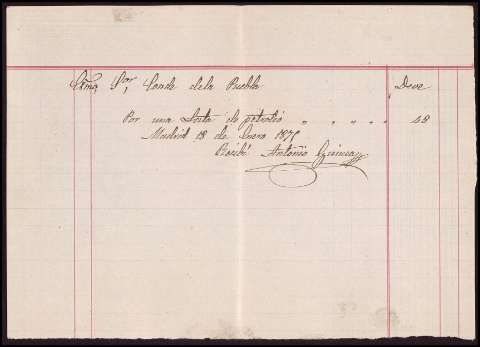 Exmo. Sor. Conde de la Puebla Deve
Por una Lata de petroleo " " " " 48
Madrid 18 de Enero 187
Recibi Antonio